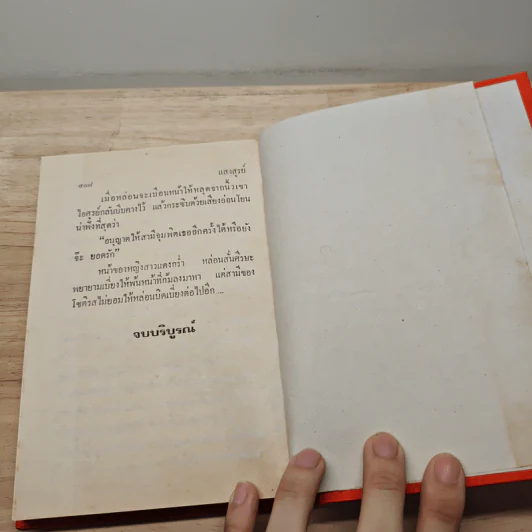 ๕๑๘ แสงสูรย์
เมื่อหล่อนจะเบือนหน้าให้หลุดจากนิ้วเขา
ไอศูรย์กลับบีบคางไว้ แล้วกระซิบด้วยเสียงอ่อนโยน
น่าฟังที่สุดว่า
“อนุญาตให้สามีจุมพิตเธออีกครั้งได้หรือยัง
จ๊ะ ยอดรัก”
หน้าของหญิงสาวแดงกร่ำ หล่อนสั่นศีรษะ
พยายามเบี่ยงให้พ้นหน้าที่ก้มลงมาหา แต่สามีของ
โชติรสไม่ยอมให้หล่อนบิดเบี่ยงต่อไปอีก....
จบบริบูรณ์